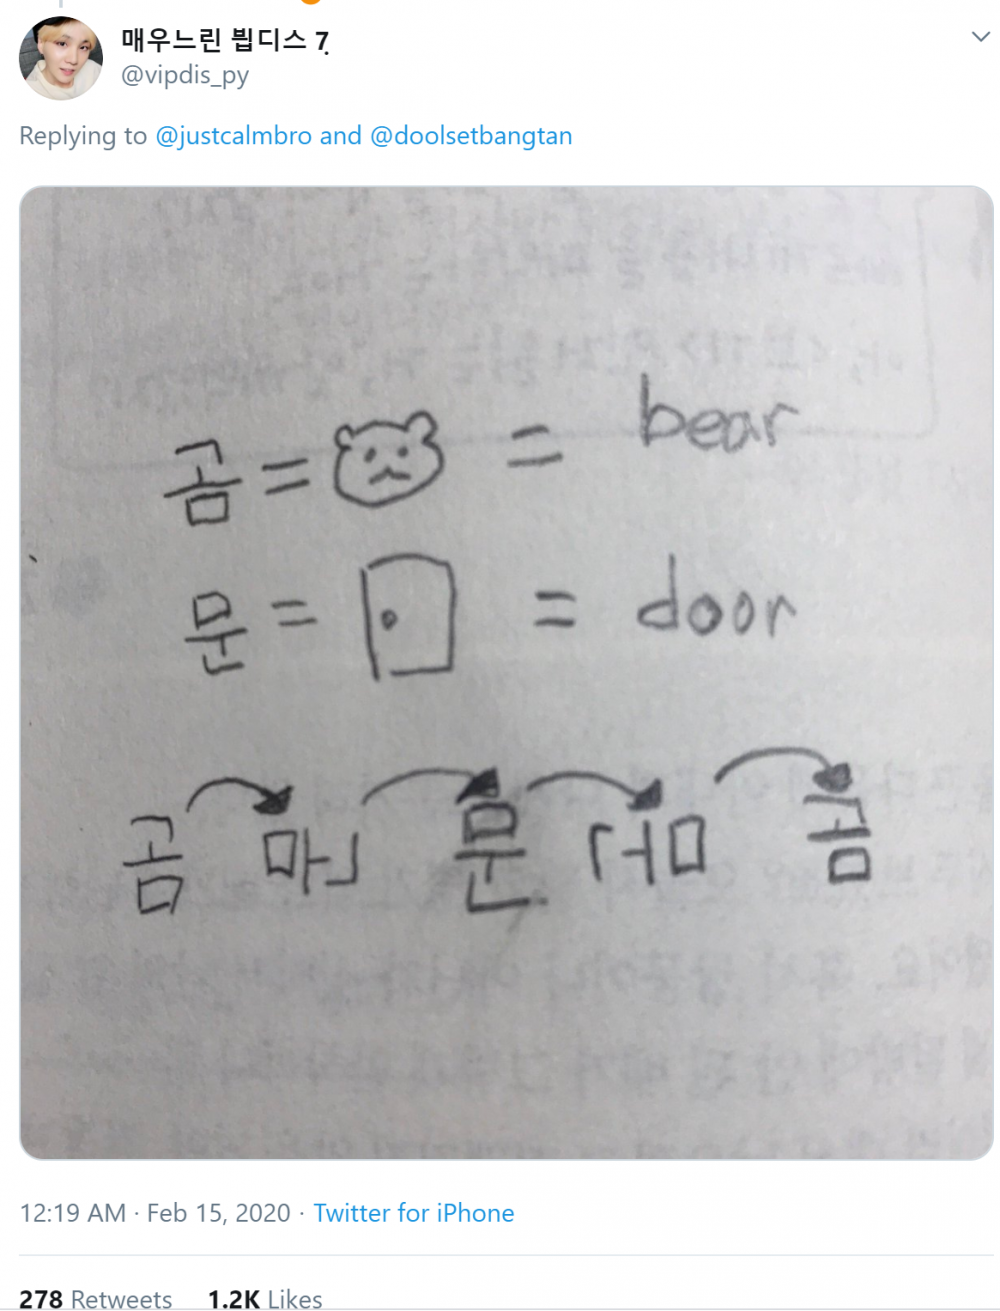 매우느린 뷥디스 7
@vipdis_py
Replying to @justcalmbro and @doolsetbangtan
곰 = = bear
문 = = door
곰 문 곰
12:19 AM · Feb 15, 2020 · Twitter for iPhone
278 Retweets 1.2K Likes